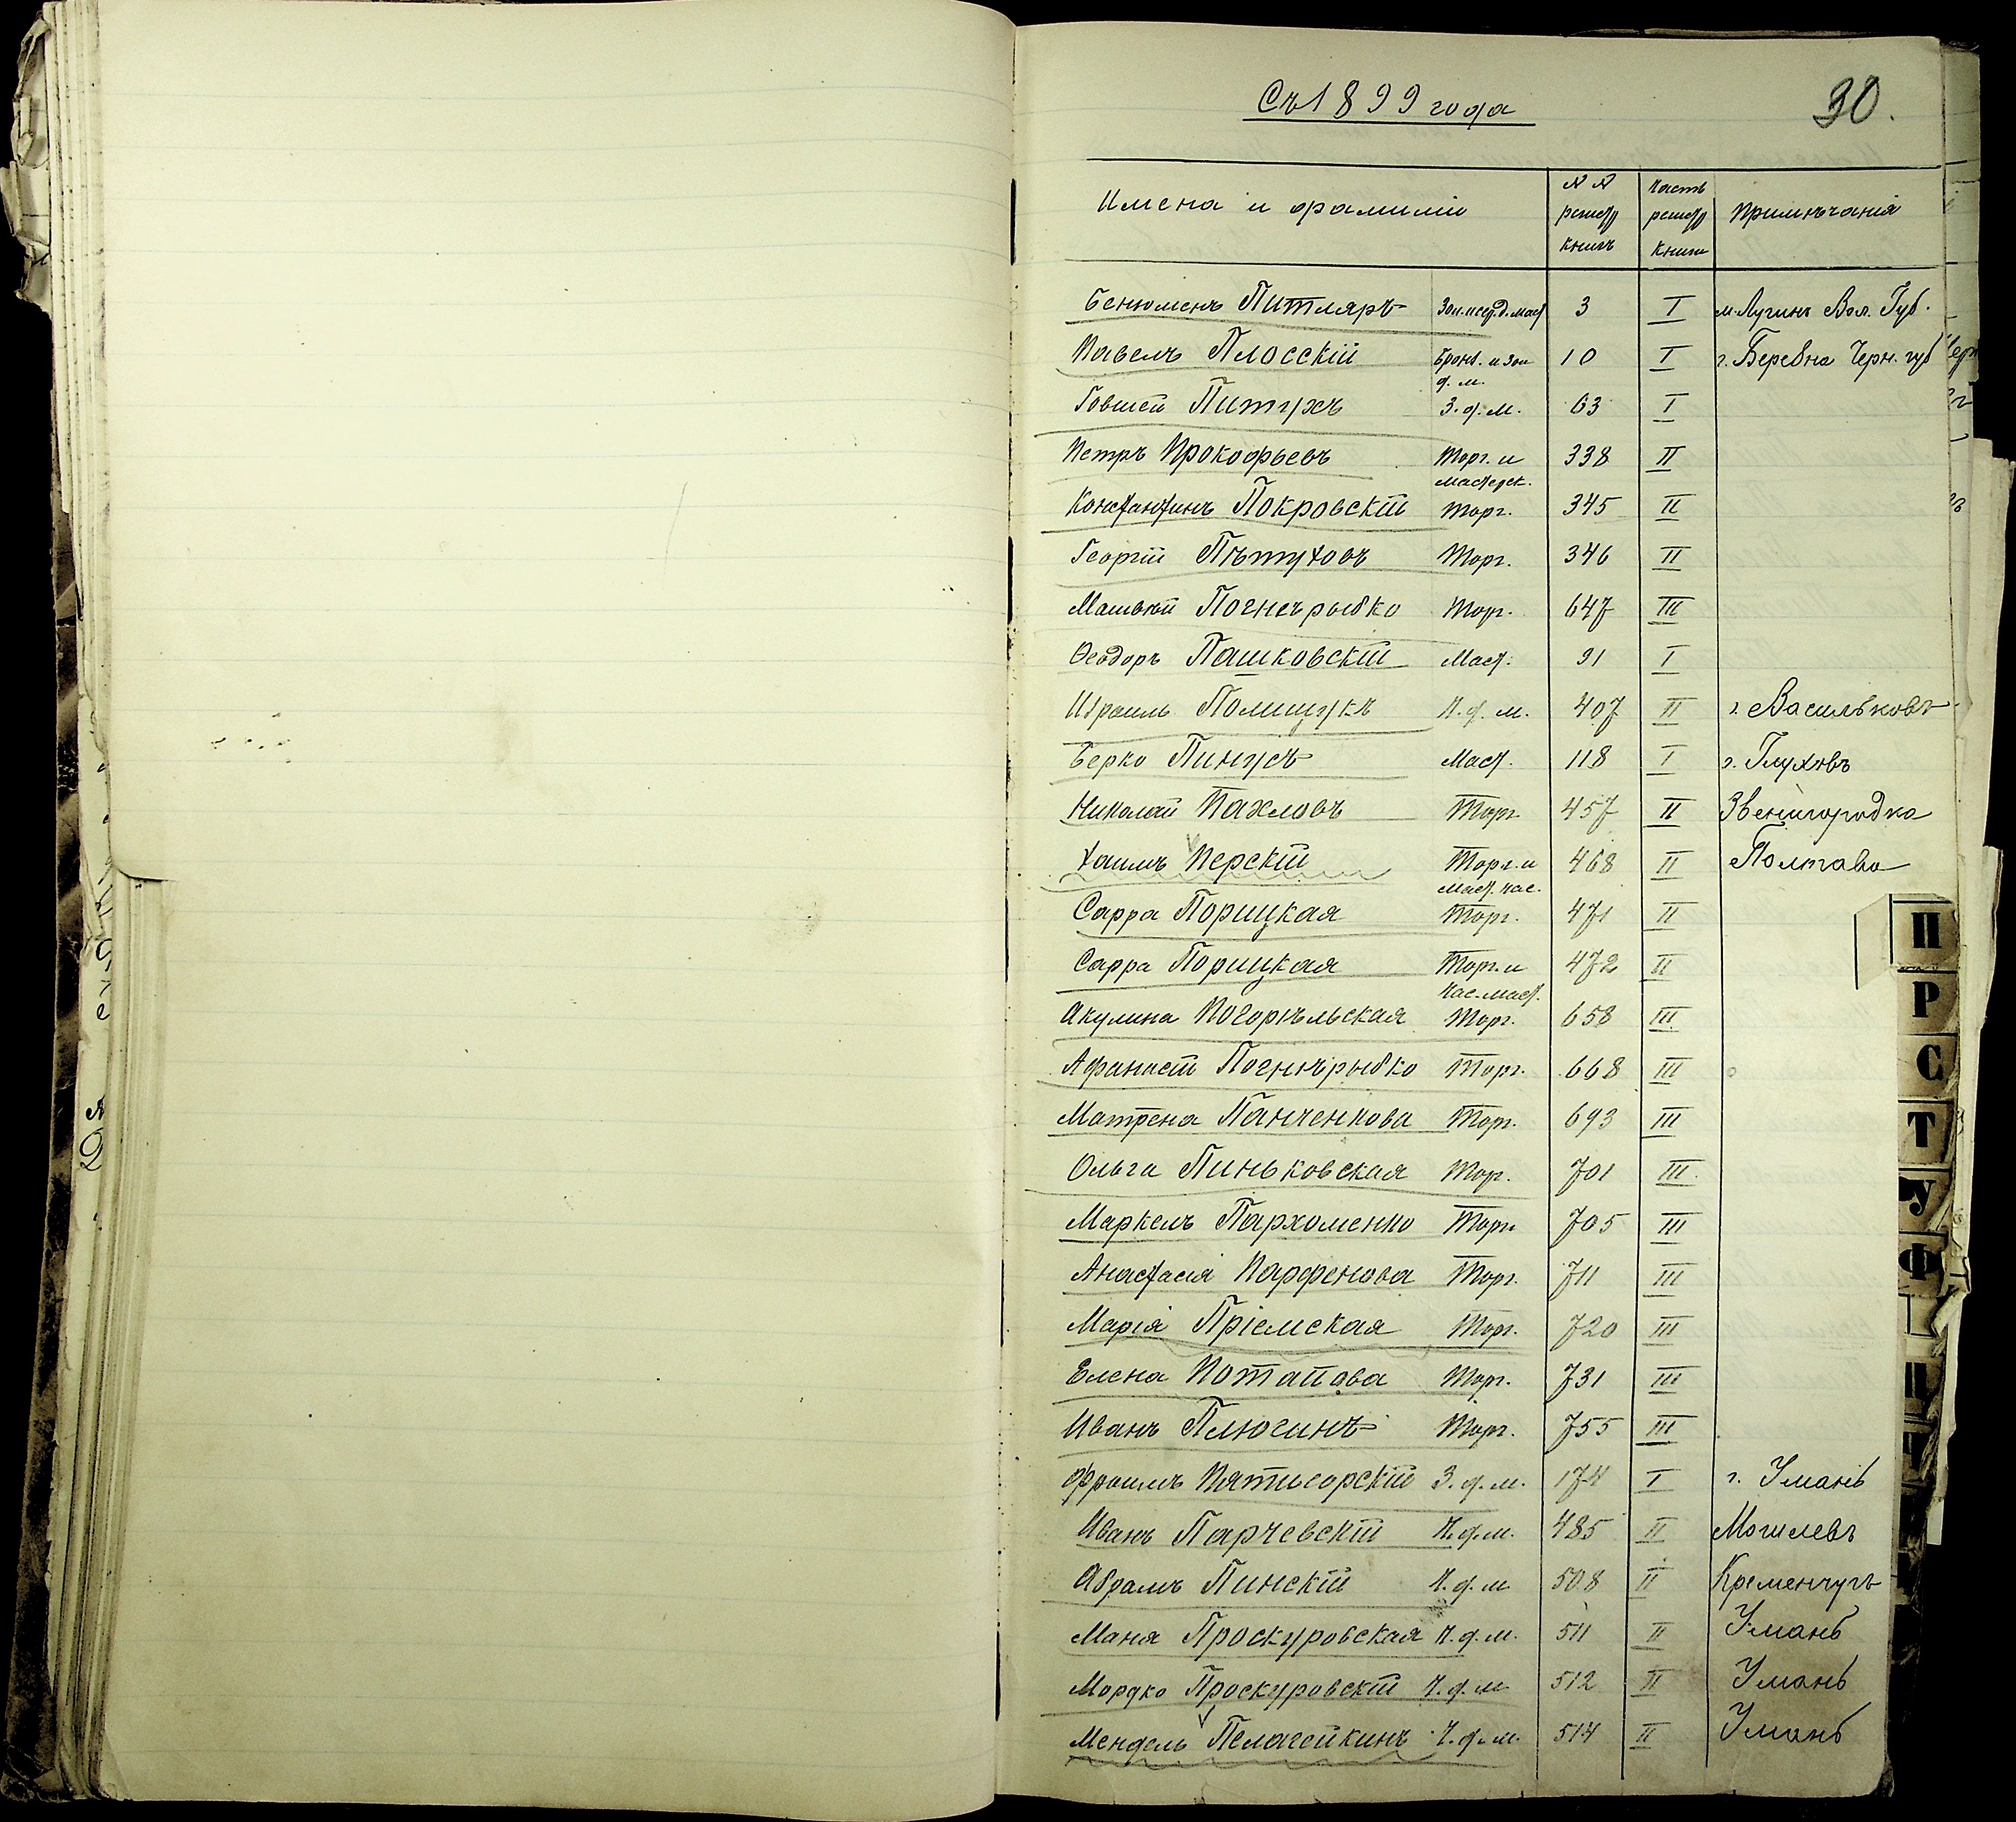 Съ 1899 года
30.
Имена и фамиліи
№ №
регистр
книгъ
Часть
регистр
книги
Примѣчанія
Бенюменъ Питляръ Зол. и сер. д. маст 3 I м. Лугинъ Вол. Губ.
Павелъ Плосскій Бронз. и зол 10 I г. Беревна Черн. губ
д. м.
Говшей Питухъ З. д. м. 63 I
Петръ Прокофьевъ Торг. и 338 II
мастерск.
Константинъ Покровскій Торг. 345 II
Георгій Пѣтуховъ Торг. 346 II
Матвѣй Рыбко Торг. 647 III
Ѳеодоръ Пашковскій Маст. 91 I
Израиль Полищукъ Ч. д. м. 407 II г. Васильковъ
Берко Пинусъ Маст. 118 I г. Глуховъ
Николай Пахловъ Торг. 457 II Звенигородка
Хаимъ Перскій Торг. и 468 II Полтава
маст. час.
Сарра Порицкая Торг. 471 II
Сарра Порицкая Торг. и 472 II
час. маст.
Акулина Погорѣльская Торг. 658 III
Афанасій Торг. 668 III
Матрена Панченкова Торг. 693 III
Ольга Пиньковская Тор. 701 III
Маркелъ Пархоменко Торг. 705 III
Анастасія Парфенова Торг. 711 III
Марія Пріемская Торг. 720 III
Елена Потапова Торг. 731 III
Иванъ Плюгинъ Торг. 755 III
Фроимъ Пятигорскій З. д. м. 174 I г. Умань
Иванъ Парчевскій Ч. д. м. 485 II Могилевъ
Абрамъ Пинскій Ч. д. м 508 II Кременчугъ
Маня Проскуровская Ч. д. м. 511 II Умань
Мордко Проскуровскій Ч. д. м 512 II Умань
Мендель Пелагейкинъ Ч. д. м. 514 II Умань
П
Р
С
Т
У
Ф